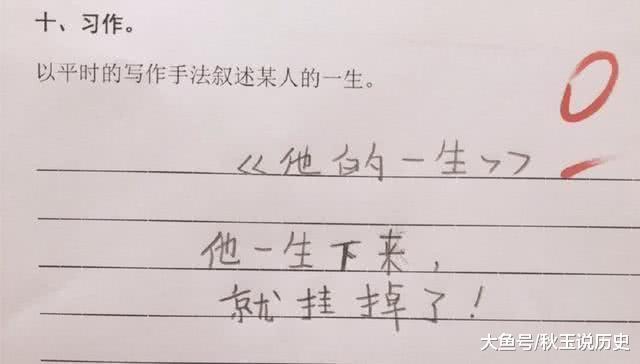 十、习作。
以平时的写作手法叙述某人的一生。
0
《他的一生》
他一生下来，
就挂掉了！
大鱼号/秋玉说历史